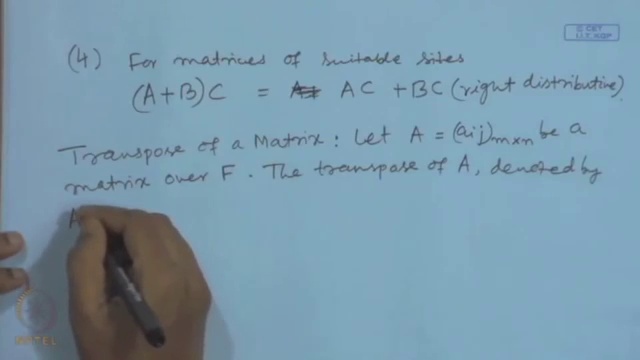 © CET
I.I.T. KGP
(4) For matrices of suitable sizes
(A+B)C = AC + BC (right distributive)
Transpose of a Matrix: Let A = (aij)m×n be a
matrix over F. The transpose of A, denoted by
A
NPTEL